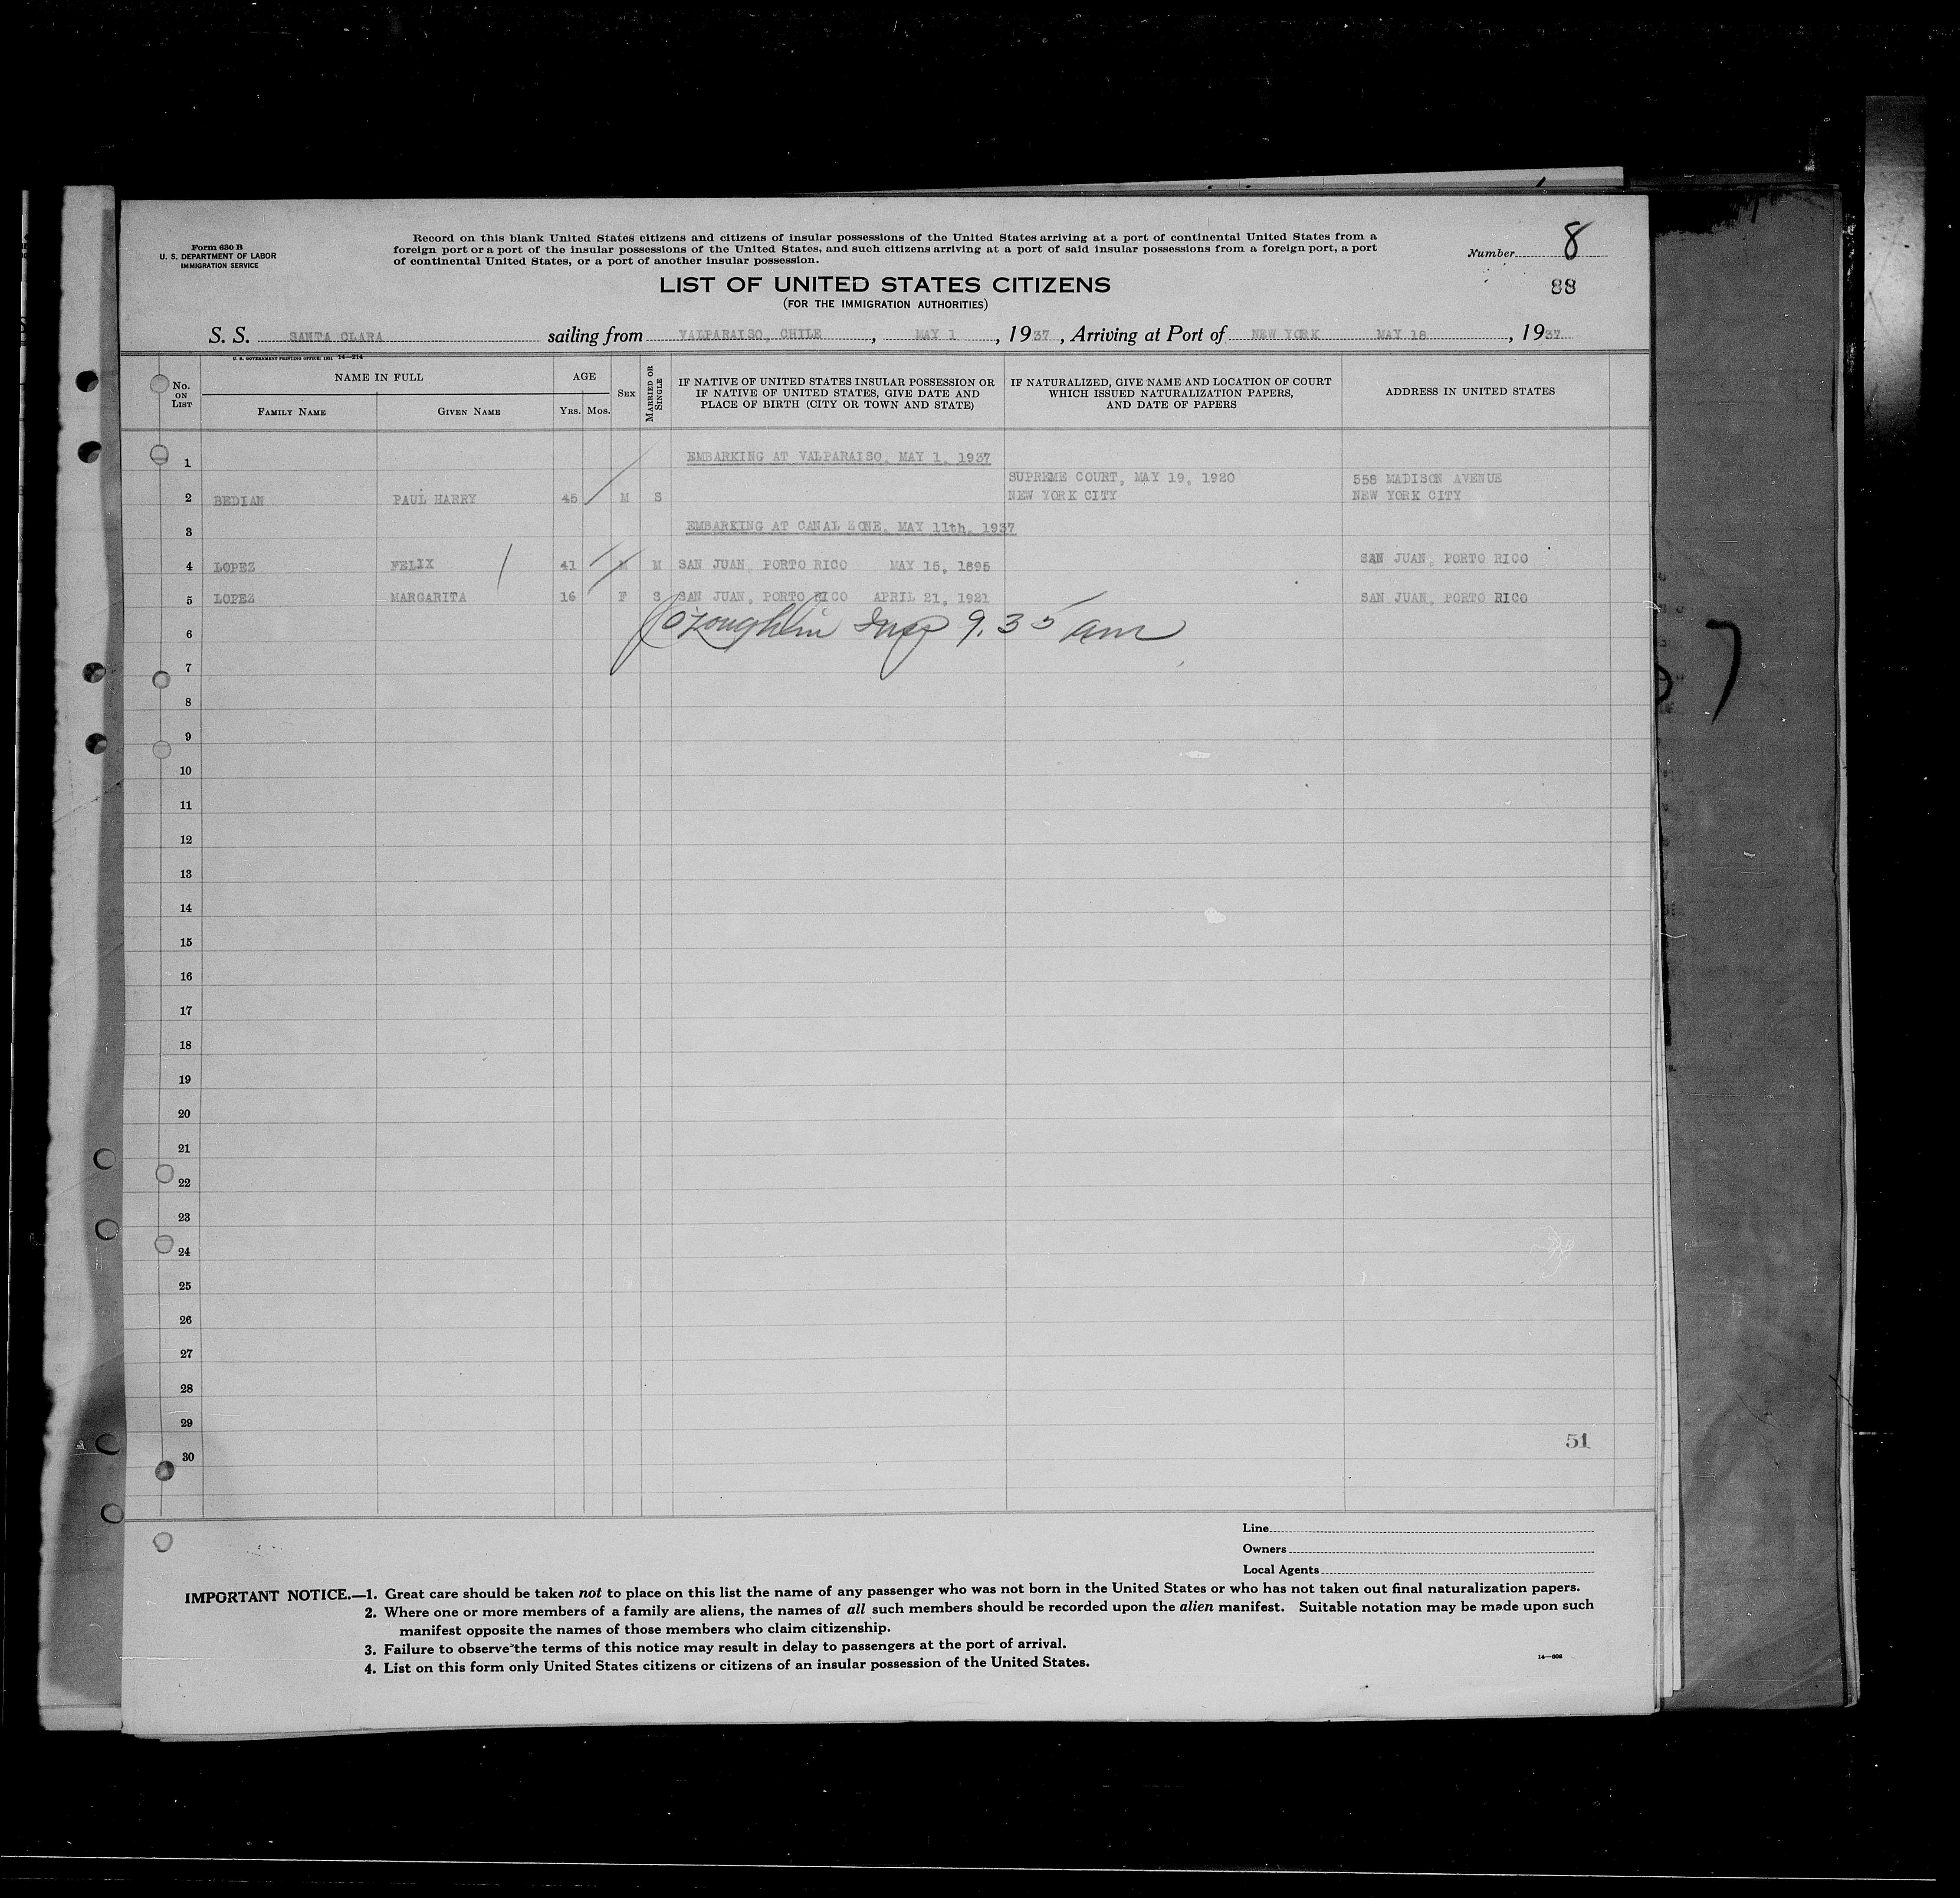 Form 630 B
U. S. DEPARTMENT OF LABOR
IMMIGRATION SERVICE
Record on this blank United States citizens and citizens of insular possessions of the United States arriving at a port of continental United States from a
foreign port or a port of the insular possessions of the United States, and such citizens arriving at a port of said insular possessions from a foreign port, a port
of continental United States, or a port of another insular possession.
Number 8
88
LIST OF UNITED STATES CITIZENS
(FOR THE IMMIGRATION AUTHORITIES)
S. S. SANTA CLARA sailing from VALPARAISO, CHILE, MAY 1, 1937, Arriving at Port of NEW YORK MAY 18, 1937
U. S. GOVERNMENT PRINTING OFFICE: 1931 14—214
No. ON LIST
NAME IN FULL
FAMILY NAME
GIVEN NAME
AGE
YRS. MOS.
SEX
MARRIED OR SINGLE
IF NATIVE OF UNITED STATES INSULAR POSSESSION OR
IF NATIVE OF UNITED STATES, GIVE DATE AND
PLACE OF BIRTH (CITY OR TOWN AND STATE)
IF NATURALIZED, GIVE NAME AND LOCATION OF COURT
WHICH ISSUED NATURALIZATION PAPERS,
AND DATE OF PAPERS
ADDRESS IN UNITED STATES
1 EMBARKING AT VALPARAISO, MAY 1, 1937
SUPREME COURT, MAY 19, 1920 558 MADISON AVENUE
2 BEDIAN PAUL HARRY 45 M S NEW YORK CITY NEW YORK CITY
3 EMBARKING AT CANAL ZONE, MAY 11th, 1937
4 LOPEZ FELIX 41 M M SAN JUAN, PORTO RICO MAY 15, 1895 SAN JUAN, PORTO RICO
5 LOPEZ MARGARITA 16 F S SAN JUAN, PORTO RICO APRIL 21, 1921 SAN JUAN, PORTO RICO
6 O'Loughlin Insp 9.35 am
7
8
9
10
11
12
13
14
15
16
17
18
19
20
21
22
23
24
25
26
27
28
29
30
51
Line
Owners
Local Agents
IMPORTANT NOTICE.—1. Great care should be taken not to place on this list the name of any passenger who was not born in the United States or who has not taken out final naturalization papers.
2. Where one or more members of a family are aliens, the names of all such members should be recorded upon the alien manifest. Suitable notation may be made upon such
manifest opposite the names of those members who claim citizenship.
3. Failure to observe the terms of this notice may result in delay to passengers at the port of arrival.
4. List on this form only United States citizens or citizens of an insular possession of the United States.
14—606